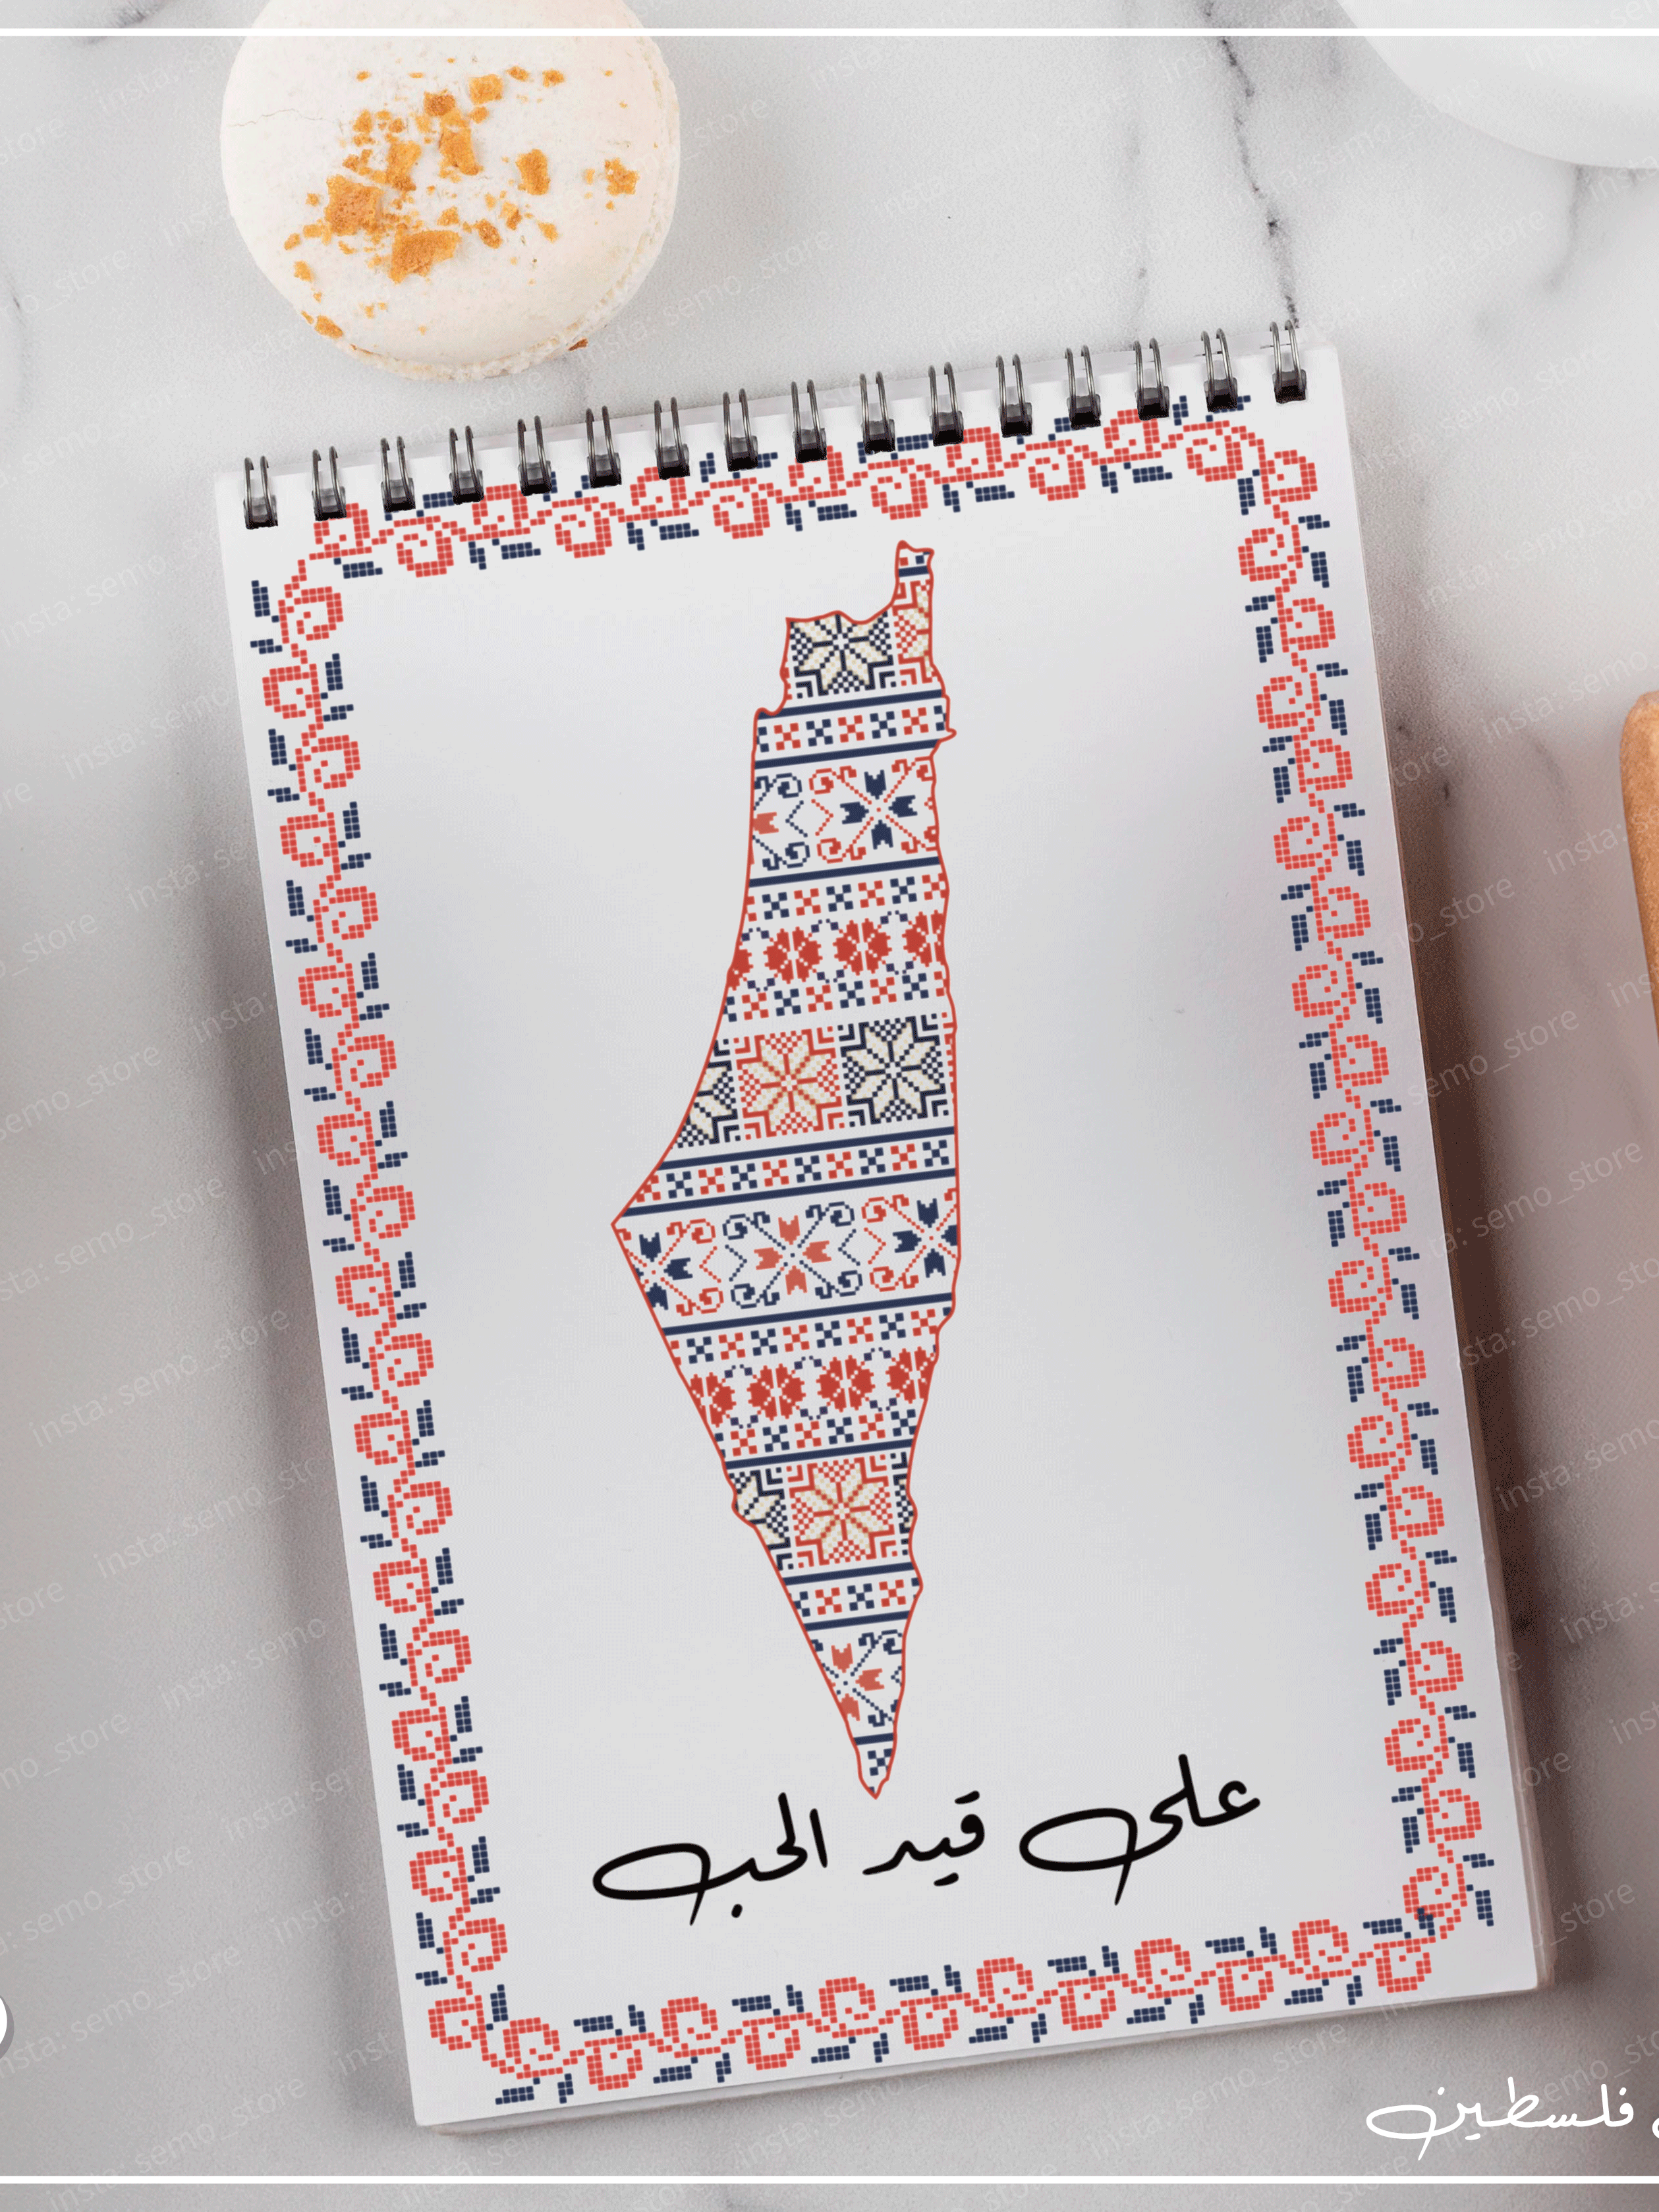 على قيد الحب
فلسطين
insta: semo_store